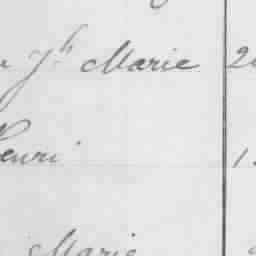 Jh Marie 2
Henri 1
Marie